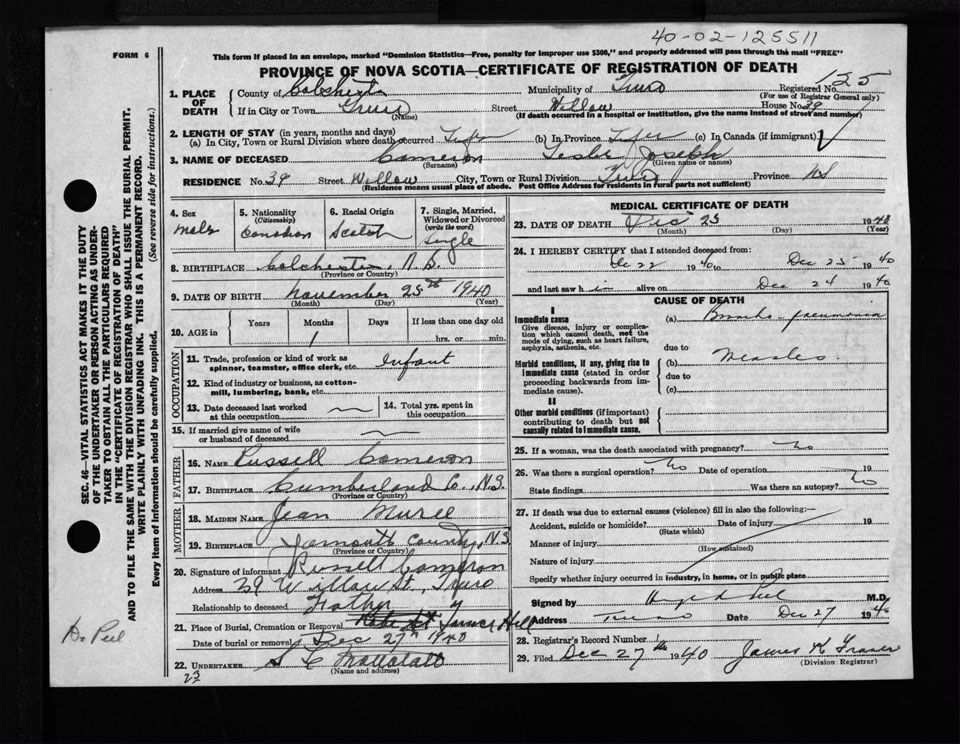 40-02-125511
FORM 6
This form if placed in an envelope, marked "Dominion Statistics—Free, penalty for improper use $300," and properly addressed will pass through the mail "FREE"
PROVINCE OF NOVA SCOTIA—CERTIFICATE OF REGISTRATION OF DEATH
1. PLACE OF DEATH
County of Colchester Municipality of Truro Registered No. 125
(For use of Registrar General only)
If in City or Town Truro Street Willow House No. 39
(Name) (If death occurred in a hospital or institution, give the name instead of street and number)
2. LENGTH OF STAY (in years, months and days)
(a) In City, Town or Rural Division where death occurred Life (b) In Province Life (c) In Canada (if immigrant)
3. NAME OF DECEASED Cameron Leslie Joseph
(Surname) (Given name or names)
RESIDENCE No. 39 Street Willow City, Town or Rural Division Truro Province NS
(Residence means usual place of abode. Post Office Address for residents in rural parts not sufficient)
4. Sex
Male
5. Nationality
(Citizenship)
Canadian
6. Racial Origin
Scotch
7. Single, Married, Widowed or Divorced
(write the word)
Single
8. BIRTHPLACE Colchester, N.S.
(Province or Country)
9. DATE OF BIRTH November 25th 1940
(Month) (Day) (Year)
10. AGE in
Years Months Days If less than one day old
1 hrs. or min.
OCCUPATION
11. Trade, profession or kind of work as spinner, teamster, office clerk, etc. Infant
12. Kind of industry or business, as cotton-mill, lumbering, bank, etc.
13. Date deceased last worked at this occupation
14. Total yrs. spent in this occupation
15. If married give name of wife or husband of deceased
FATHER
16. NAME Russell Cameron
17. BIRTHPLACE Cumberland Co., N.S.
(Province or Country)
MOTHER
18. MAIDEN NAME Jean
19. BIRTHPLACE Yarmouth County, N.S.
(Province or Country)
20. Signature of informant Russell Cameron
Address 39 Willow St., Truro
Relationship to deceased Father
21. Place of Burial, Cremation or Removal Hill
Date of burial or removal Dec 27th 1940
22. UNDERTAKER S C
(Name and address)
23
MEDICAL CERTIFICATE OF DEATH
23. DATE OF DEATH Dec 25 1940
(Month) (Day) (Year)
24. I HEREBY CERTIFY that I attended deceased from:
Dec 22 1940 to Dec 25 1940
and last saw h im alive on Dec 24 1940
CAUSE OF DEATH
I
Immediate cause
Give disease, injury or complication which caused death, not the mode of dying, such as heart failure, asphyxia, asthenia, etc.
(a) Broncho-pneumonia
due to
Morbid conditions, if any, giving rise to immediate cause (stated in order proceeding backwards from immediate cause).
(b) Measles.
due to
(c)
II
Other morbid conditions (if important) contributing to death but not causally related to immediate cause.
25. If a woman, was the death associated with pregnancy? no
26. Was there a surgical operation? No Date of operation 19
State findings Was there an autopsy? no
27. If death was due to external causes (violence) fill in also the following:—
Accident, suicide or homicide? Date of injury 19
(State which)
Manner of injury
(How sustained)
Nature of injury
Specify whether injury occurred in industry, in home, or in public place
Signed by Peel M.D.
Address Truro Date Dec 27 1940
28. Registrar's Record Number
29. Filed Dec 27th 1940 James K Fraser
(Division Registrar)
SEC. 46—VITAL STATISTICS ACT MAKES IT THE DUTY
OF THE UNDERTAKER OR PERSON ACTING AS UNDER-
TAKER TO OBTAIN ALL THE PARTICULARS REQUIRED
IN THE "CERTIFICATE OF REGISTRATION OF DEATH"
AND TO FILE THE SAME WITH THE DIVISION REGISTRAR WHO SHALL ISSUE THE BURIAL PERMIT.
WRITE PLAINLY WITH UNFADING INK. THIS IS A PERMANENT RECORD.
Every item of information should be carefully supplied. (See reverse side for instructions.)
Dr Peel